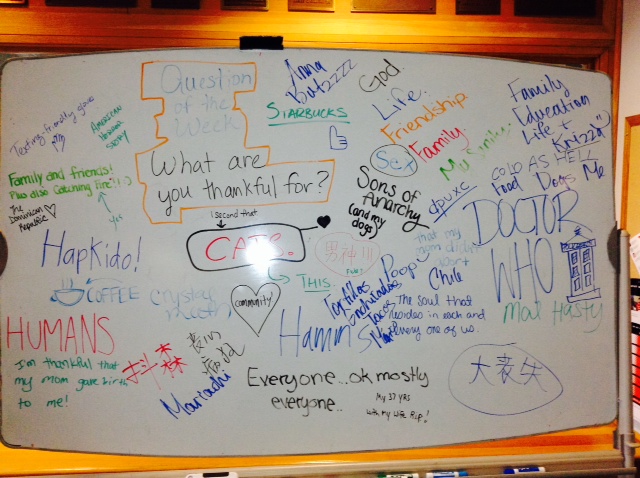 Question
of the
Week
What are
you thankful for?
Texting-friendly glove
AMERICAN
HORROR
STORY
Family and friends!
Plus also Catching Fire! :)
The
Dominican
Republic
yes
Hapkido!
COFFEE
crystal
meth
HUMANS
I'm thankful that
my mom gave birth
to me!
Mariachi
I second that
CATS.
THIS.
community
Hamm
Everyone...ok mostly
everyone..
My 37 yrs
with my wife RIP!
Anna
STARBUCKS
God
Life
Friendship
Family
Sex
My Smile
Sons of
Anarchy
(and my
dogs)
that my
mom
Poop
Chile
Tortillas
Enchiladas
Tacos
The soul that
resides in each and
every one of us.
Family
Education
Life +
COLD AS HELL
Food Dogs Me
DOCTOR
WHO
Mat Hasty
大喪失